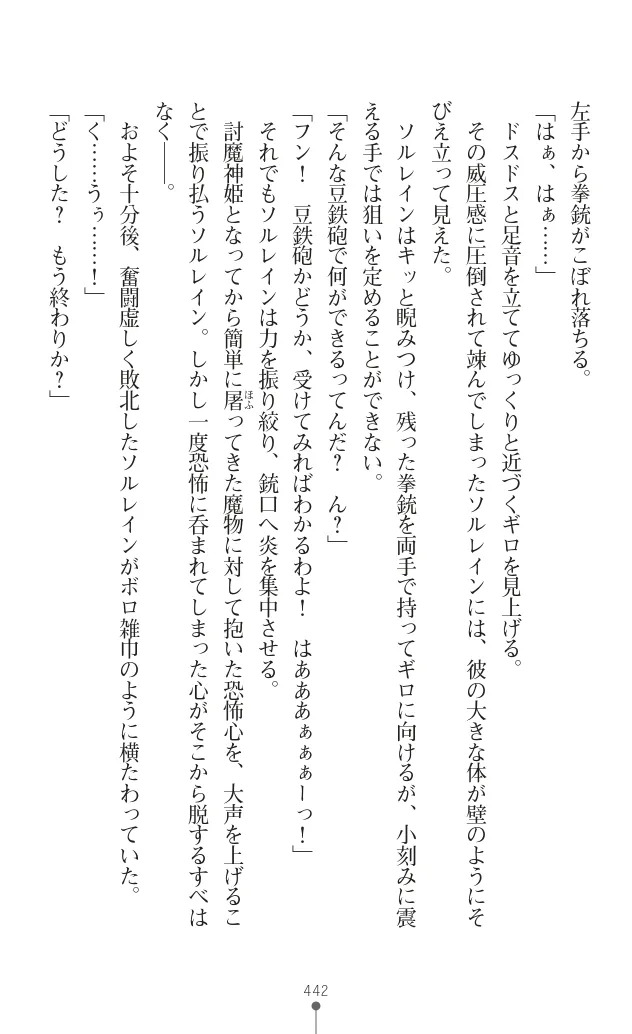 左手から拳銃がこぼれ落ちる。
「はぁ、はぁ……」
ドスドスと足音を立ててゆっくりと近づくギロを見上げる。
その威圧感に圧倒されて竦んでしまったソルレインには、彼の大きな体が壁のようにそ
びえ立って見えた。
ソルレインはキッと睨みつけ、残った拳銃を両手で持ってギロに向けるが、小刻みに震
える手では狙いを定めることができない。
「そんな豆鉄砲で何ができるってんだ？　ん？」
「フン！　豆鉄砲かどうか、受けてみればわかるわよ！　はあああぁぁぁーっ！」
それでもソルレインは力を振り絞り、銃口へ炎を集中させる。
討魔神姫となってから簡単に屠ほふってきた魔物に対して抱いた恐怖心を、大声を上げるこ
とで振り払うソルレイン。しかし一度恐怖に呑まれてしまった心がそこから脱するすべは
なく――。
およそ十分後、奮闘虚しく敗北したソルレインがボロ雑巾のように横たわっていた。
「く……うぅ……！」
「どうした？　もう終わりか？」
442